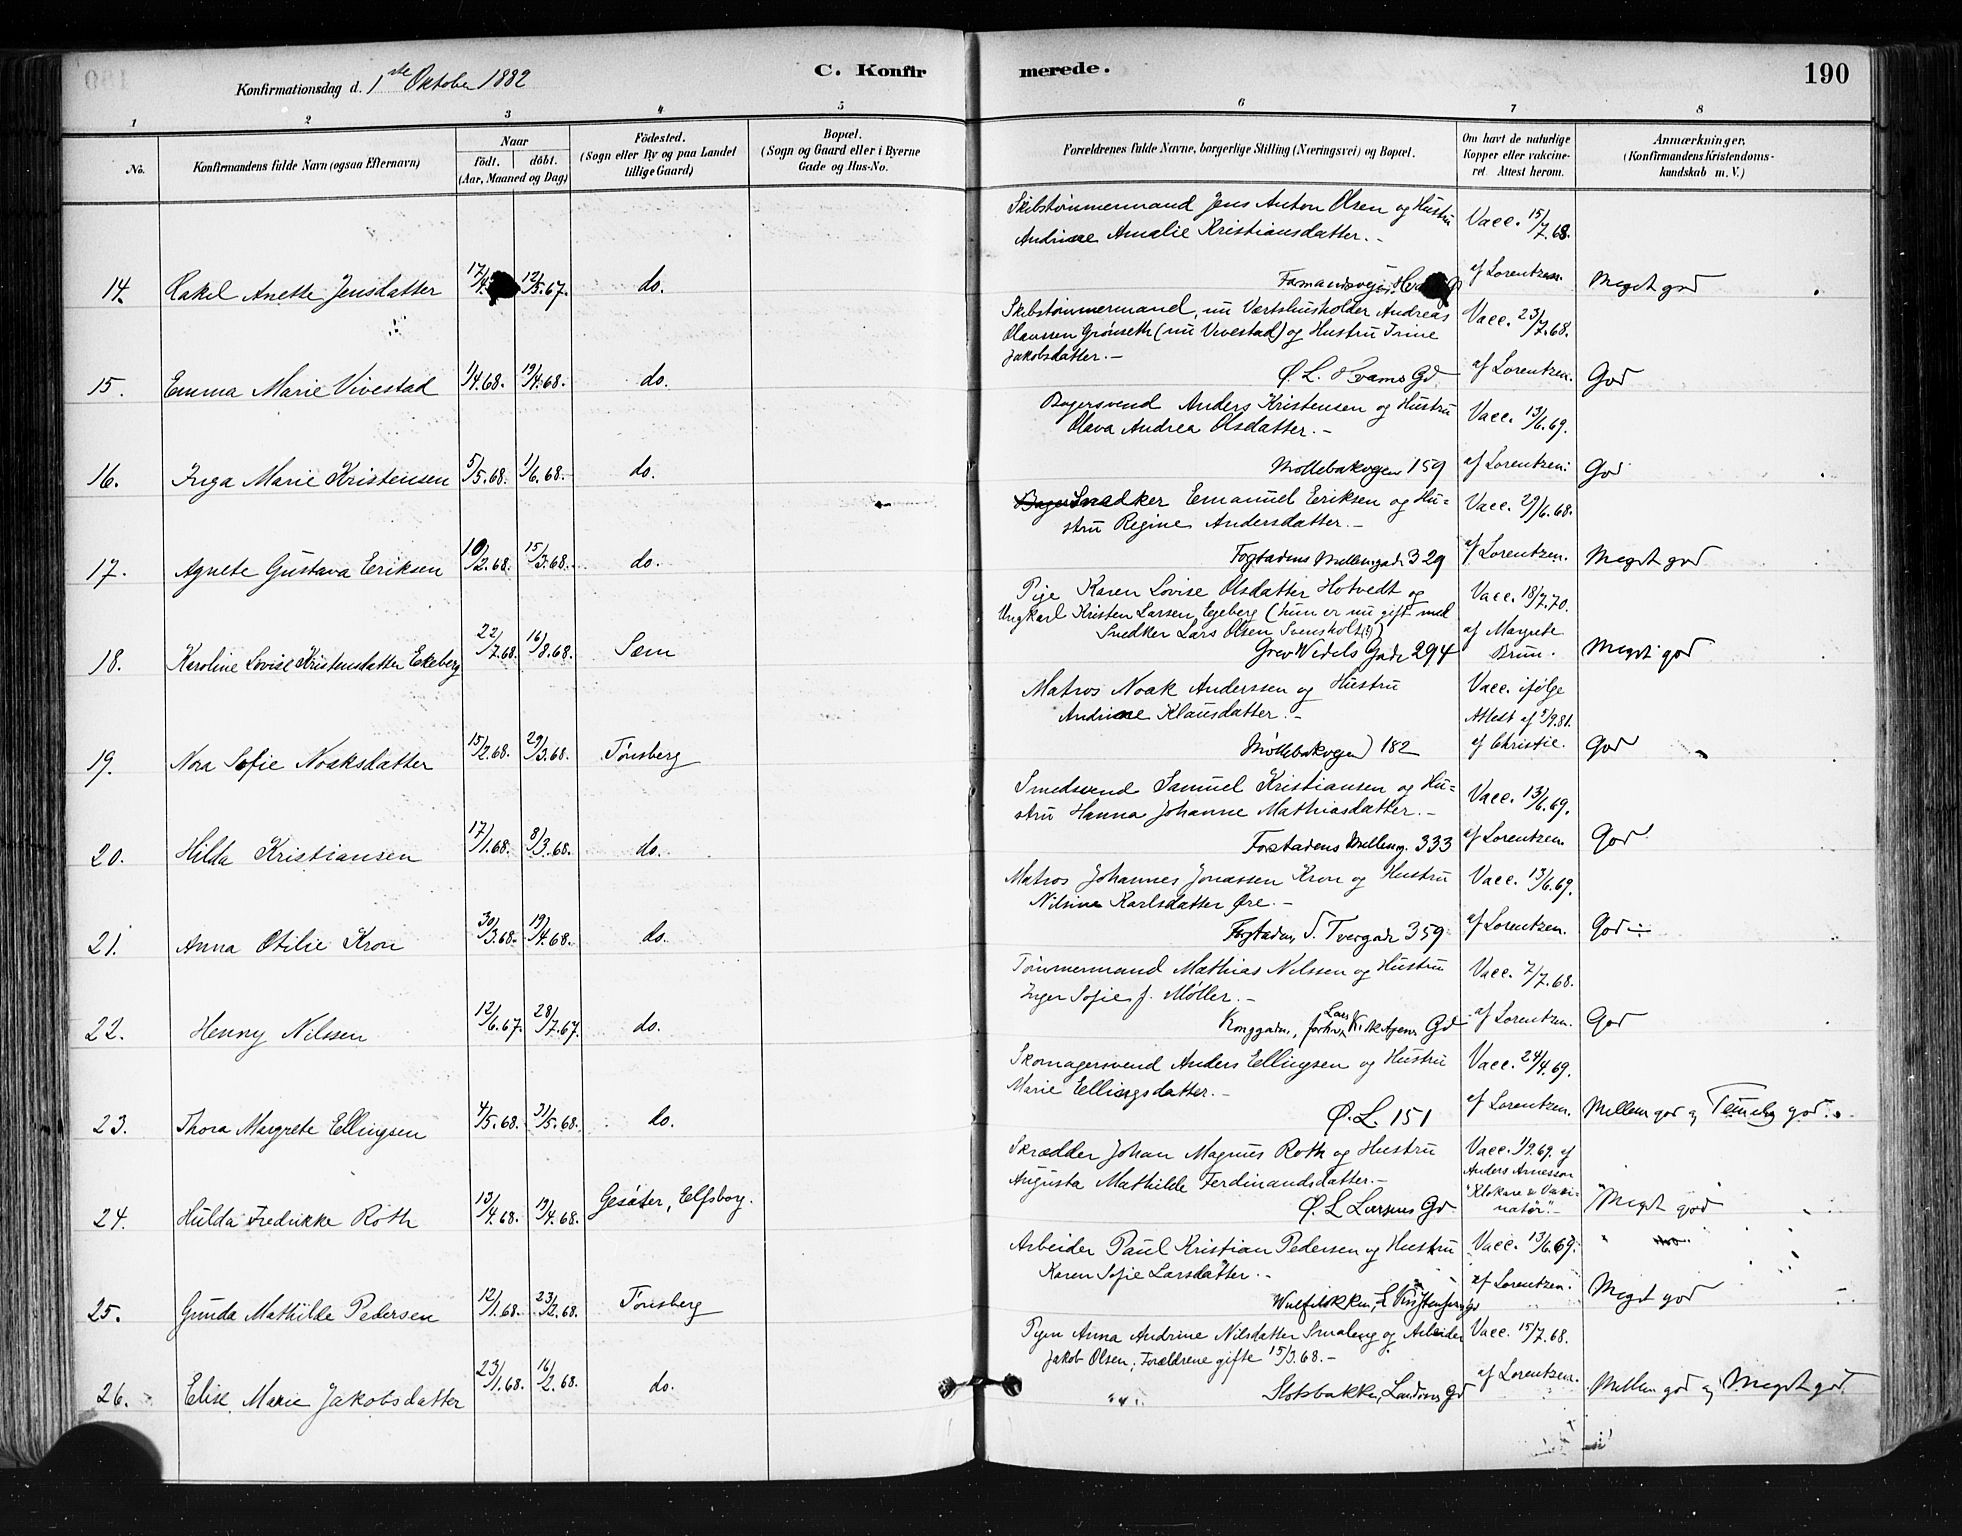 Konfirmationsdag d. 1ste Oktober 1882
C. Konfirmerede.
190
1 2 3 4 5 6 7 8
No.
Konfirmandens fulde Navn (ogsaa Efternavn)
Naar
födt. döbt.
(Aar, Maaned og Dag)
Födested.
(Sogn eller By og paa Landet
tillige Gaard)
Bopæl.
(Sogn og Gaard eller i Byerne
Gade og Hus-No.
Forældrenes fulde Navne, borgerlige Stilling (Næringsvei) og Bopæl.
Om havt de naturlige
Kopper eller vakcine-
ret Attest herom.
Anmærkninger.
(Konfirmandens Kristendoms-
kundskab m. V.)
Skibstømmermand Jens Anton Olsen og Hustru
Andrine Amalie Kristiansdatter.-
Vacc. 15/7.68.
14. Rakel Anette Jensdatter 17/4 12/5.67. do. af Lorentzen. Meget god
Skibstømmermand, nu Værtshusholder Andreas
Olaussen Grønseth (nu Vivestad) og Hustru Trine
Jakobsdatter.-
Vacc. 23/7.68.
15. Emma Marie Vivestad 1/4.68. 19/4.68. do. Ø. L. Gd. af Lorentzen. God
Bagersvend Anders Kristensen og Hustru
Olava Andrea Olsdatter.-
Vacc. 13/6.69.
16. Inga Marie Kristensen 5/5.68. 1/6.68. do. Møllebakvegen 159 af Lorentzen. God
Snedker Emanuel Eriksen og Hu-
stru Regine Andersdatter.-
Vacc. 29/6.68.
17. Agnete Gustava Eriksen 10/2.68. 15/3.68. do. Mellemgade 329 af Lorentzen. Meget god
Pige Karen Lovise Olsdatter Hotvedt og
Ungkarl Kristen Larsen Egeberg (hun er nu gift med
Snedker Lars Olsen Svensholt(?))
Vacc. 18/7.70.
af Margrete
Brun.
18. Karoline Lovise Kristensdatter Ekeberg 22/7.68 16/8.68. Sem Grev Wedels Gade 294 Meget god
Matros Noak Anderssen og Hustru
Andrine Klausdatter.-
Vacc. ifølge
Attest af 5/9.81.
af Christie.
19. Nora Sofie Noaksdatter 15/2.68. 29/3.68. Tønsberg Møllebakvegen 182 God
Smedsvend Samuel Kristiansen og Hu-
stru Hanna Johanne Mathiasdatter.-
Vacc. 13/6.69.
20. Hilda Kristiansen 17/1.68. 8/3.68. do. Forstadens Mellemg. 333 af Lorentzen. God
Matros Johannes Jonassen Kron og Hustru
Nilsine Karlsdatter Øre.-
Vacc. 13/6.69.
21. Anna Otilie Kron 30/3.68. 19/4.68. do. Tvergade 359 af Lorentzen. God
Tømmermand Mathias Nilssen og Hustru
Inger Sofie f. Møller.-
Vacc. 7/7.68.
22. Henny Nilssen 12/6.67. 28/7.67. do. Gd af Lorentzen. God
Skomagersvend Anders Ellingsen og Hustru
Marie Ellingsdatter.-
Vacc. 24/4.69.
23. Thora Margrete Ellingsen 4/5.68. 31/5.68. do. Ø. L. 151 af Lorentzen. Mellem god og Temelig god.
Skrædder Johan Magnus Roth og Hustru
Augusta Mathilde Ferdinandsdatter.-
Vacc. 1/9.69. af
Anders Arnesson
"Klokare & Vacci-
natör".-
24. Hulda Fredrikke Roth 13/4.68. 19/4.68. Gesäter, Elfsborg. Ø. L. Larsens Gd. Meget god
Arbeider Paul Kristian Pedersen og Hustru
Karen Sofie Larsdatter.-
Vacc. 13/6.69.
25. Gunda Mathilde Pedersen 12/1.68. 23/2.68. Tønsberg af Lorentzen. Meget god
Pigen Anna Andrine Nilsdatter Smaberg og Arbeider
Jakob Olsen; Forældrene gifte 15/3.68.-
Vacc. 15/7.68.
26. Elise Marie Jakobsdatter 23/1.68. 16/2.68. do. Slotsbakken, Gd af Lorentzen. Mellem god og Meget god